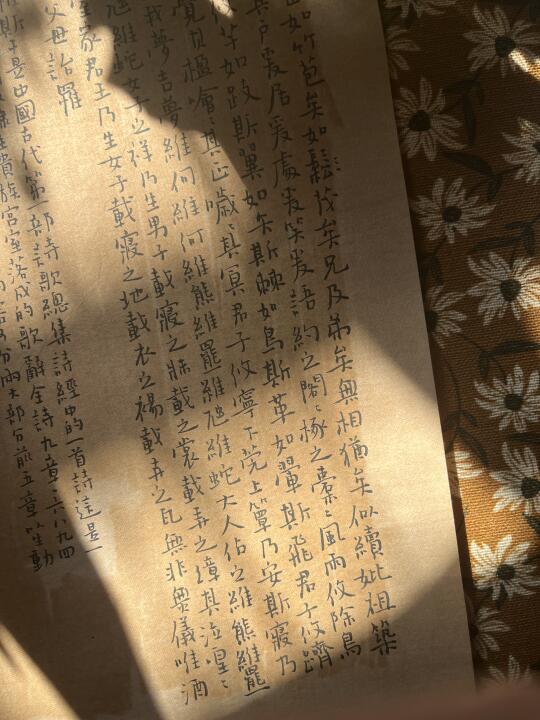 如竹苞矣如鬆茂矣兄及弟矣無相猶矣似續妣祖築
其戶爰居爰處爰笑爰語約之閣〻椓之橐〻風雨攸除鳥
芋如跂斯翼如矢斯棘如鳥斯革如翬斯飛君子攸躋
覺其楹噲〻其正噦〻其冥君子攸寧下莞上簟乃安斯寢乃
我夢吉夢維何維熊維羆維虺維蛇大人佔之維熊維羆
虺維蛇女子之祥乃生男子載寢之牀載之裳載弄之璋其泣喤〻
室家君王乃生女子載寢之地載衣之裼載弄之瓦無非無儀唯酒
父母詒罹
斯干是中國古代第一部詩歌總集詩經中的一首詩這是一
貴族宮室落成的歌辭全詩九章六八九四
分兩大部分前五章以生動